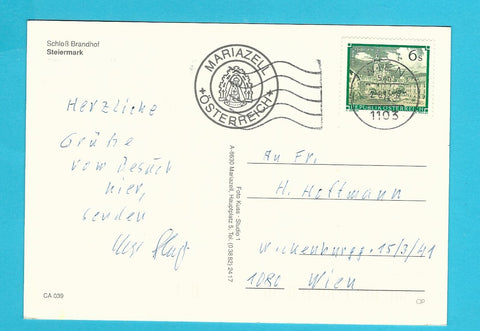 Schloß Brandhof
Steiermark
MARIAZELL
ÖSTERREICH
6s
REPUBLIK ÖSTERREICH
1103
Herzliche
Grüße
vom Besuch
hier,
senden
An Fr.
H. Hoffmann
Wickenburgg. 15/3/41
1080 Wien
Foto Kuss · Studio 1
A-8630 Mariazell, Hauptplatz 5, Tel. (0 38 82) 24 17
GA 039
OP